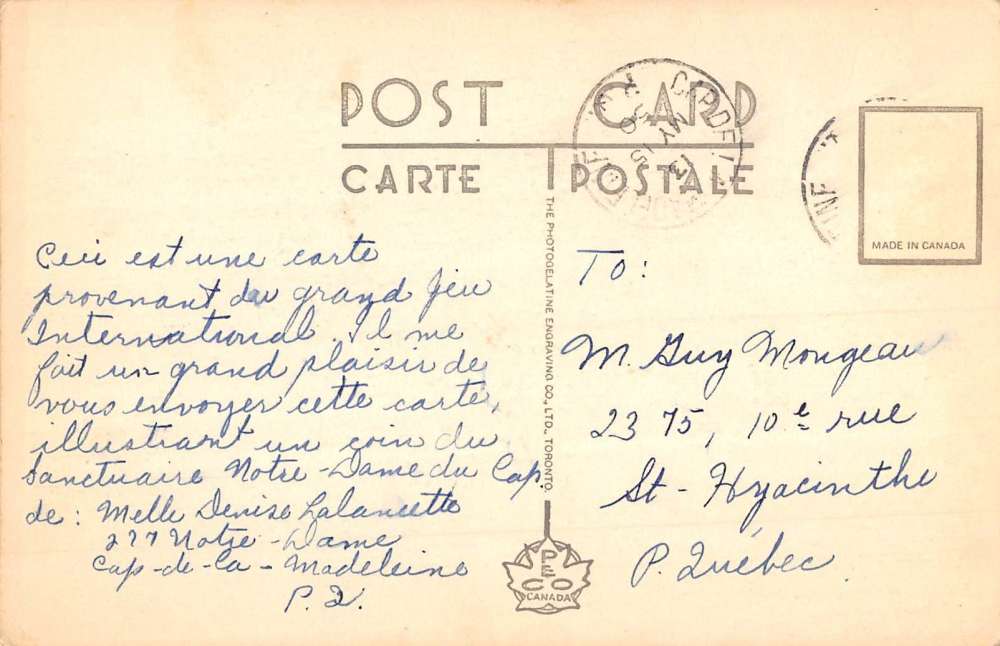 POST CARD
CARTE POSTALE
CAP DE LA MADELEINE
MY 15
50
P.Q.
MADE IN CANADA
THE PHOTOGELATINE ENGRAVING CO., LTD., TORONTO.
Ceci est une carte
provenant du grand jeu
International. Il me
fait un grand plaisir de
vous envoyer cette carte,
illustrant un coin du
Sanctuaire Notre-Dame du Cap.
de: Melle Denise Lalancette
277 Notre-Dame
Cap-de-la-Madeleine
P.Q.
TO:
M. Guy Mongeau
2375, 10e rue
St-Hyacinthe
P. Québec.
PECO
CANADA